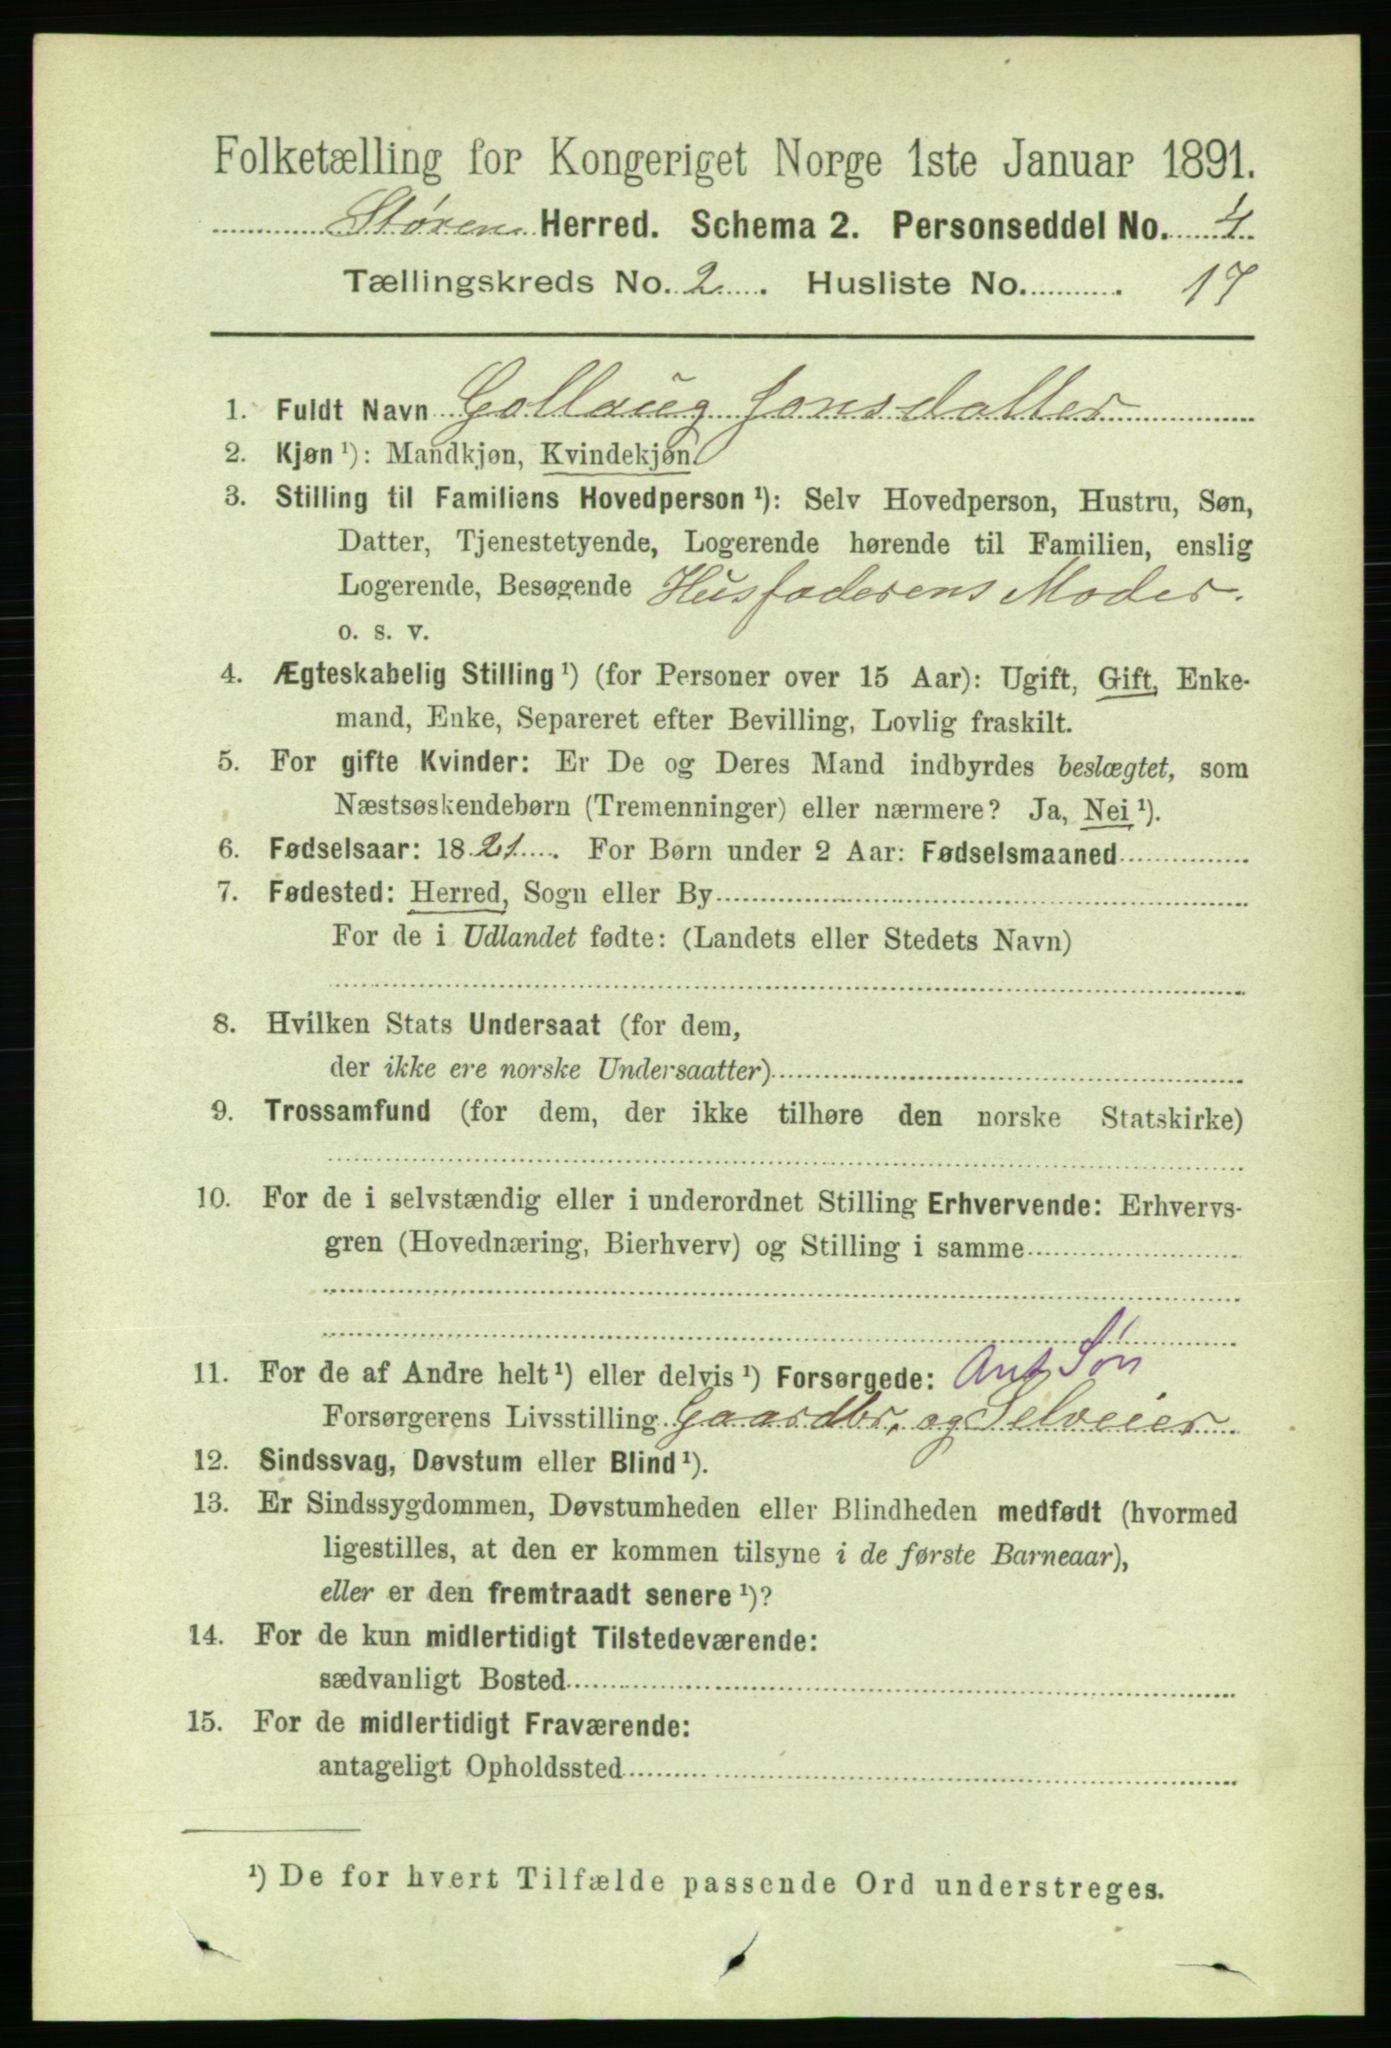 Folketælling for Kongeriget Norge 1ste Januar 1891.
Støren Herred. Schema 2. Personseddel No. 4
Tællingskreds No. 2. Husliste No. 17
1. Fuldt Navn Gollaug Jonsdatter
2. Kjøn ¹): Mandkjøn, Kvindekjøn.
3. Stilling til Familiens Hovedperson ¹): Selv Hovedperson, Hustru, Søn,
Datter, Tjenestetyende, Logerende hørende til Familien, enslig
Logerende, Besøgende Husfaderens Moder.
o. s. v.
4. Ægteskabelig Stilling ¹) (for Personer over 15 Aar): Ugift, Gift, Enke-
mand, Enke, Separeret efter Bevilling, Lovlig fraskilt.
5. For gifte Kvinder: Er De og Deres Mand indbyrdes beslægtet, som
Næstsøskendebørn (Tremenninger) eller nærmere? Ja, Nei ¹).
6. Fødselsaar: 1821. For Børn under 2 Aar: Fødselsmaaned
7. Fødested: Herred, Sogn eller By
For de i Udlandet fødte: (Landets eller Stedets Navn)
8. Hvilken Stats Undersaat (for dem,
der ikke ere norske Undersaatter)
9. Trossamfund (for dem, der ikke tilhøre den norske Statskirke)
10. For de i selvstændig eller i underordnet Stilling Erhvervende: Erhvervs-
gren (Hovednæring, Bierhverv) og Stilling i samme
11. For de af Andre helt ¹) eller delvis ¹) Forsørgede: Ant Søn
Forsørgerens Livsstilling Gaardbr. og Selveier
12. Sindssvag, Døvstum eller Blind ¹).
13. Er Sindssygdommen, Døvstumheden eller Blindheden medfødt (hvormed
ligestilles, at den er kommen tilsyne i de første Barneaar),
eller er den fremtraadt senere ¹)?
14. For de kun midlertidigt Tilstedeværende:
sædvanligt Bosted
15. For de midlertidigt Fraværende:
antageligt Opholdssted
¹) De for hvert Tilfælde passende Ord understreges.